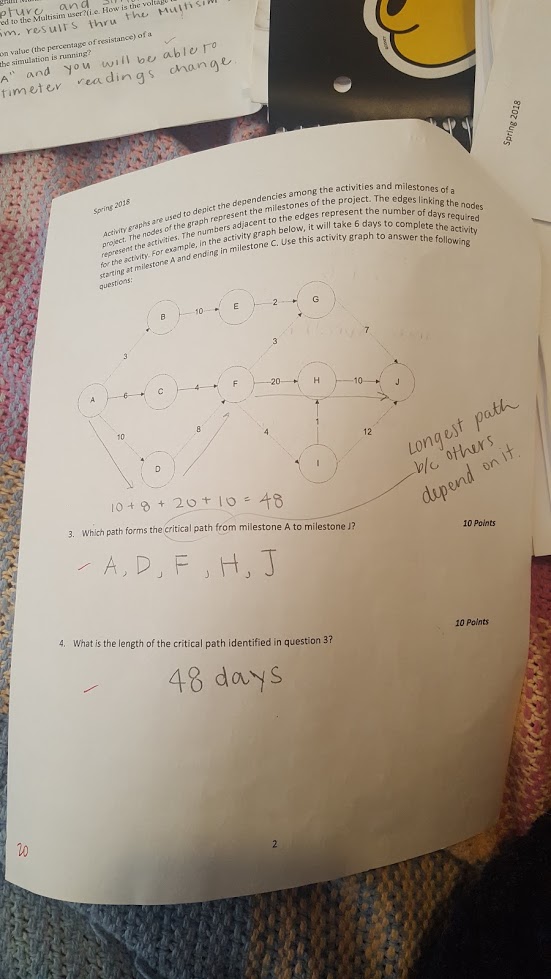 pture and
ed to the Multisim user?(i.e. How is the voltage
im. results thru the Multisim
on value (the percentage of resistance) of a
the simulation is running?
A" and you will be able to
timeter readings change.
Spring 2018
Spring 2018
Activity graphs are used to depict the dependencies among the activities and milestones of a
project. The nodes of the graph represent the milestones of the project. The edges linking the nodes
represent the activities. The numbers adjacent to the edges represent the number of days required
for the activity. For example, in the activity graph below, it will take 6 days to complete the activity
starting at milestone A and ending in milestone C. Use this activity graph to answer the following
questions:
B 10 E 2 G
3 3 7
A 6 C 4 F 20 H 10 J
10 8 4 1 12
D I
Longest path
b/c others
depend on it.
10 + 8 + 20 + 10 = 48
3. Which path forms the critical path from milestone A to milestone J? 10 Points
A, D, F, H, J
10 Points
4. What is the length of the critical path identified in question 3?
48 days
20
2